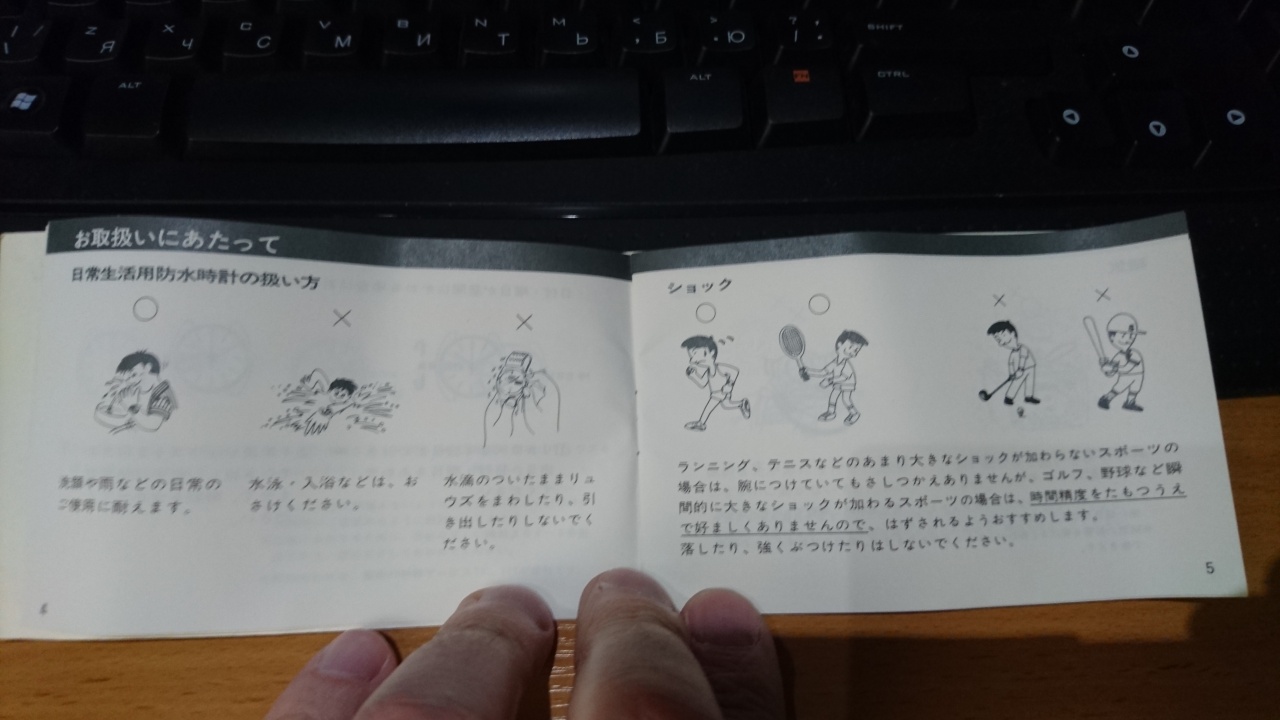 Z Я
X Ч
C С
V М
B И
N Т
M Ь
< , Б
> . Ю
? / .
SHIFT
ALT
ALT
CTRL
お取扱いにあたって
日常生活用防水時計の扱い方
○
×
×
洗顔や雨などの日常の
ご使用に耐えます。
水泳・入浴などは、お
さけください。
水滴のついたままリュ
ウズをまわしたり、引
き出したりしないでく
ださい。
ショック
○
○
×
×
ランニング、テニスなどのあまり大きなショックが加わらないスポーツの
場合は、腕につけていてもさしつかえありませんが、ゴルフ、野球など瞬
間的に大きなショックが加わるスポーツの場合は、時間精度をたもつうえ
で好ましくありませんので、はずされるようおすすめします。
落したり、強くぶつけたりはしないでください。
5